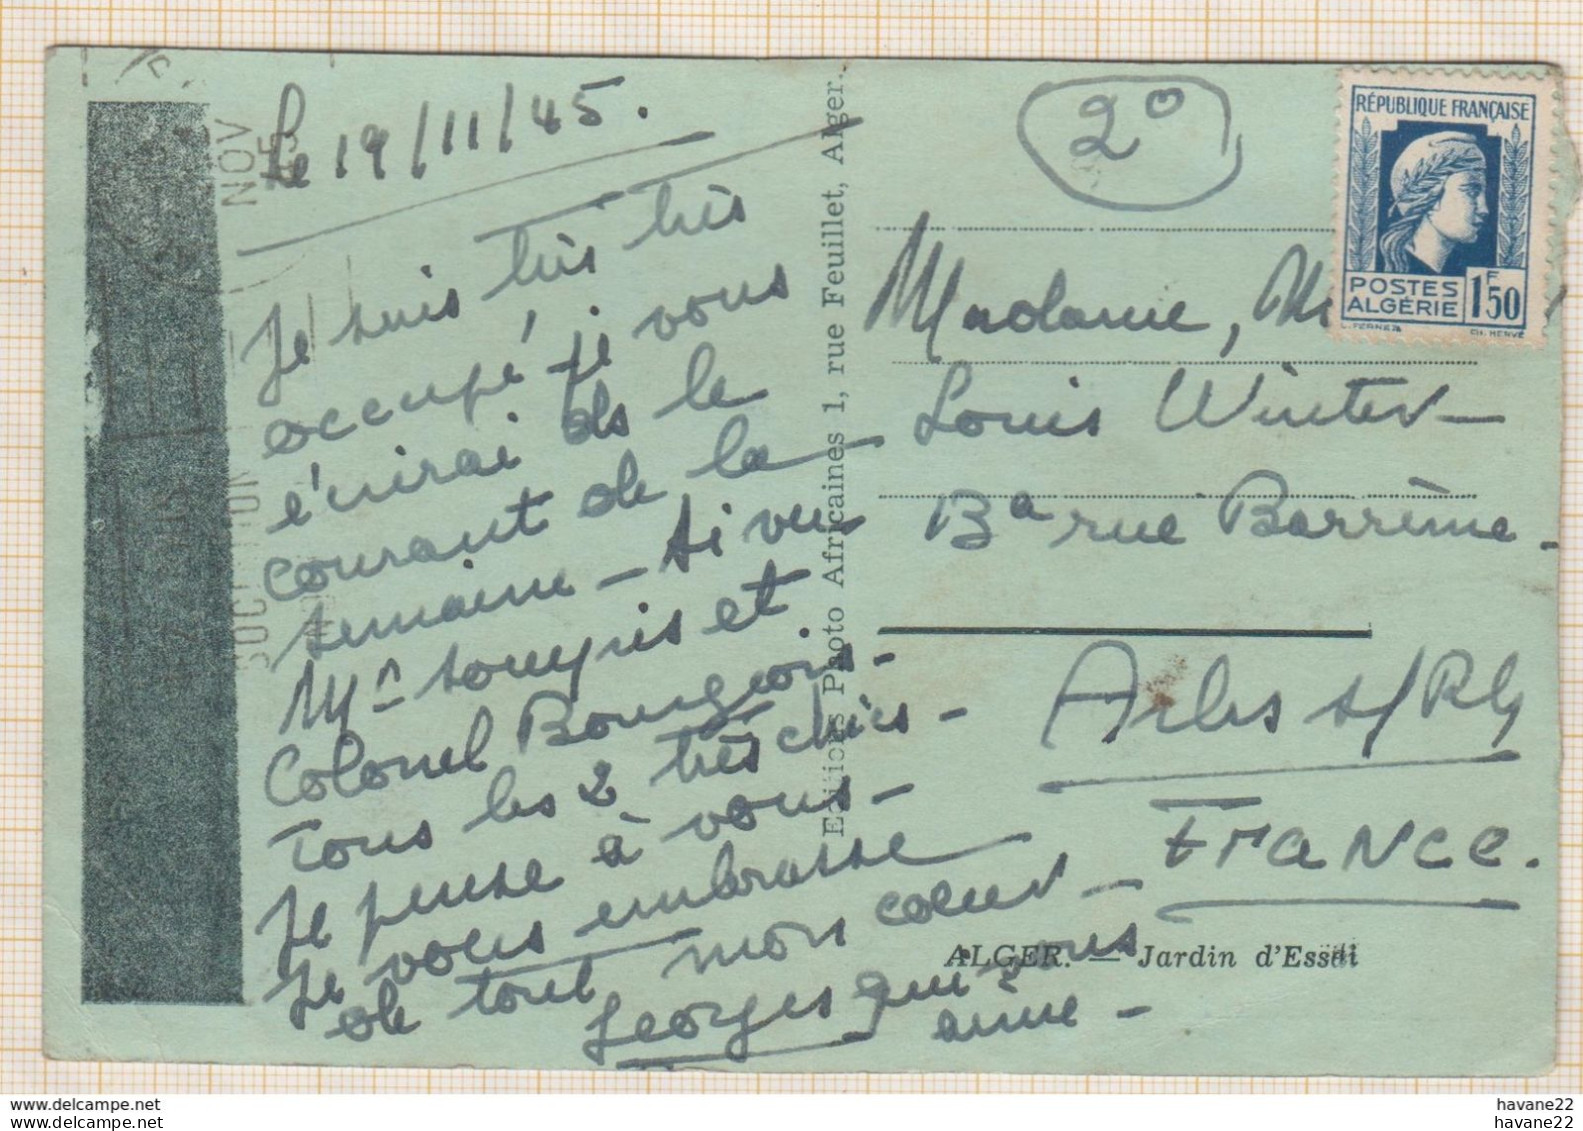 Le 19/11/45.
Je suis très très
occupé je vous
écrirai ds le
courant de la
semaine - Ai vu
Mr Souyris et
Colonel Bourgeois -
Tous les 2 très chics -
Je pense à vous -
Je vous embrasse
de tout mon coeur -
Georges qui vous
aime -
NOV
Editions Photo Africaines 1, rue Feuillet, Alger.
2°
RÉPUBLIQUE FRANÇAISE
POSTES
ALGÉRIE
1F50
CH. HERVÉ
Madame,
Louis Winter -
Ba rue Barrème -
Arles s/Rh
FRANCE.
ALGER. — Jardin d'Essai
havane22
havane22
havane22
havane22